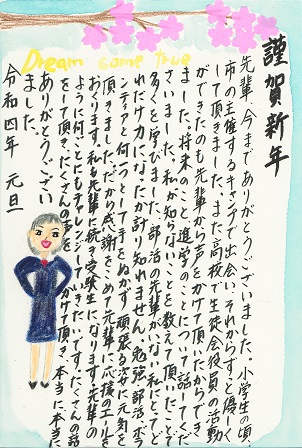 Dream come true
謹賀新年
先輩、今までありがとうございました。小学生の頃
市の主催するキャンプで出会い、それからずっと優しく
して頂きました。また高校で生徒会役員の活動
ができたのも先輩から声をかけて頂いたからでき
ました。将来のこと、進学のことについて話してくだ
さいました。私が知らないことを教えて頂いたこと
多くを学びました。部活の先輩がいない私にとって、ど
れだけ力になったか計り知れません。勉強、部活、ボラ
ンティアと何一つとして手をぬかず頑張る姿に元気を
頂きました。だから感謝をこめて先輩に応援のエールを
おります。私も先輩に続き受験生になります。先輩の
ように何ごとにもチャレンジしていきたいです。たくさんの話
をして頂き、たくさんの
かけて頂き、本当に本当に
ありがとうござい
ました。
令和四年 元旦